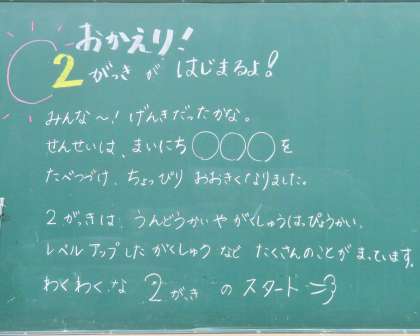 おかえり!
2がっきが はじまるよ!
みんな〜!げんきだったかな。
せんせいは、まいにち○○○を
たべつづけ、ちょっぴり おおきくなりました。
2がっきは、うんどうかいや がくしゅうはっぴょうかい、
レベルアップした がくしゅう など たくさんのことが まっています。
わくわくな 2がっき の スタート